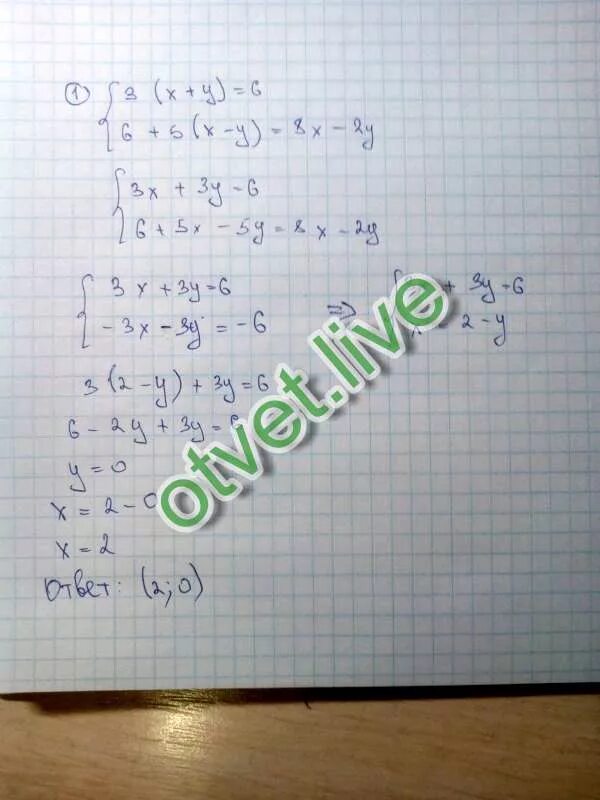 ① 3 (x + y) = 6
6 + 5 (x - y) = 8x - 2y
3x + 3y = 6
6 + 5x - 5y = 8x - 2y
3x + 3y = 6
- 3x - 3y = - 6
=>
+ 3y = 6
2 - y
3 (2 - y) + 3y = 6
6 - 2y + 3y = 6
y = 0
x = 2 - 0
x = 2
Ответ: (2; 0)
otvet.live